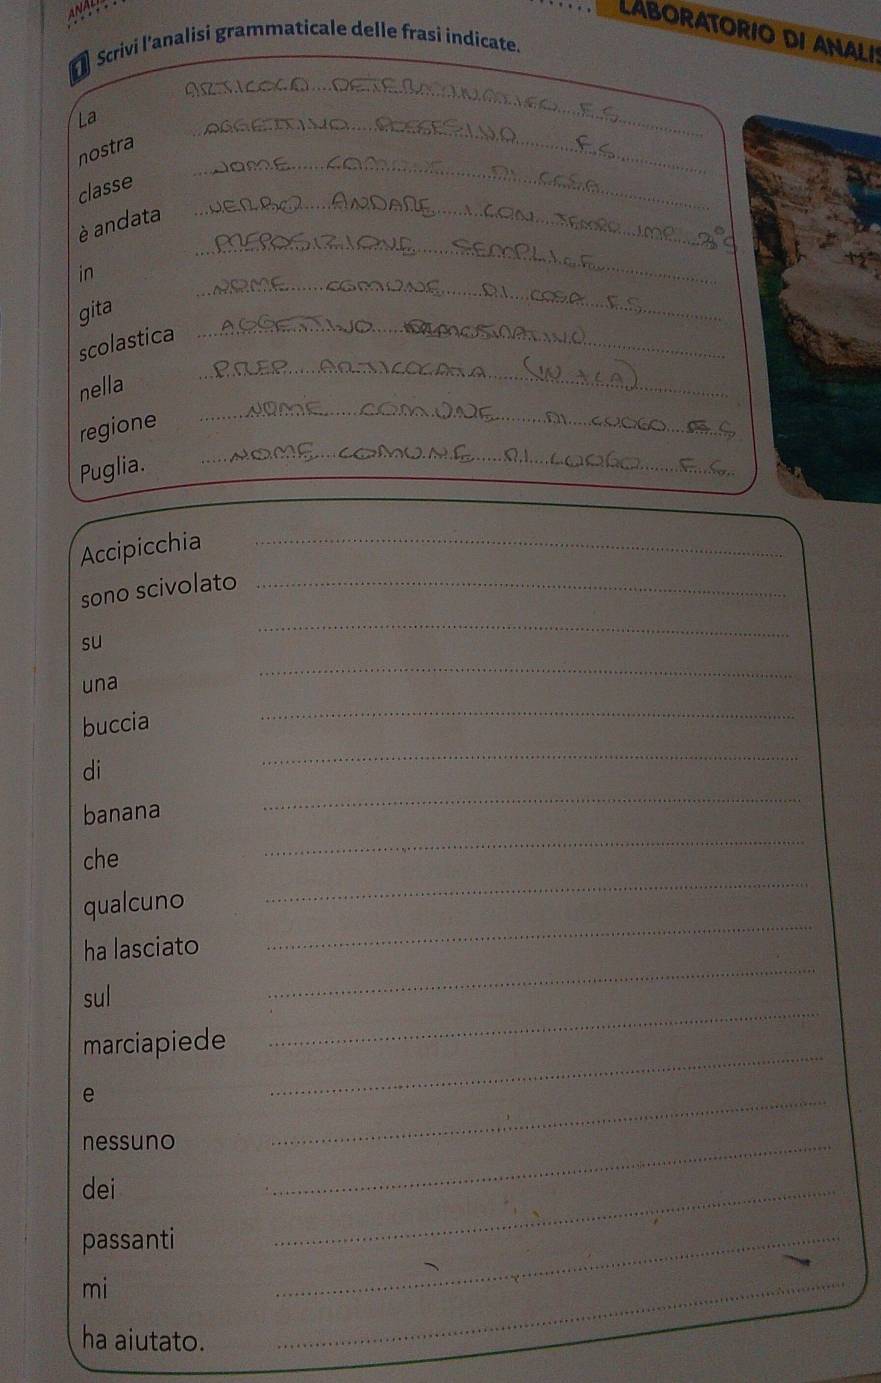 LABORATORIO DI ANALIS
1 Scrivi l'analisi grammaticale delle frasi indicate.
La ARTICOLO DETERMINATIVO F.S.
nostra AGGETTIVO POSSESSIVO F.S.
classe NOME COMUNE DI COSA
è andata VERBO ANDARE 1 CON TEMPO IMP 3° S
in PREPOSIZIONE SEMPLICE
gita NOME COMUNE DI COSA F.S
scolastica AGGETTIVO
nella PREP ARTICOLATA (IN + LA)
regione NOME COMUNE DI LUOGO F S
Puglia. NOME COMUNE DI LUOGO F S
Accipicchia
sono scivolato
su
una
buccia
di
banana
che
qualcuno
ha lasciato
sul
marciapiede
e
nessuno
dei
passanti
mi
ha aiutato.